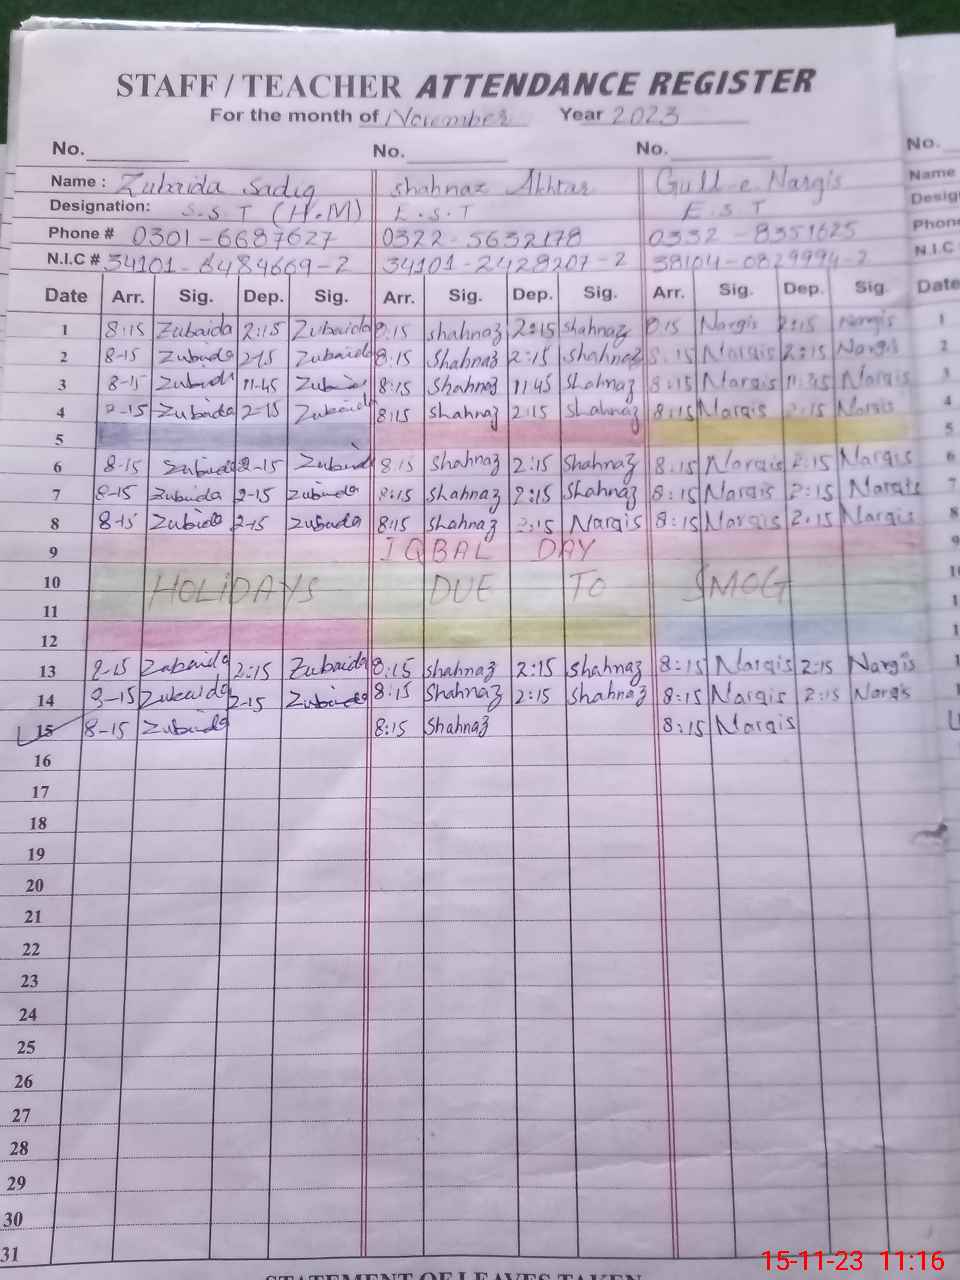 STAFF / TEACHER ATTENDANCE REGISTER
For the month of November Year 2023
No. No. No. No.
Name : Zubaida Sadiq Shahnaz Akhtar Gull-e-Nargis Name
Designation: S.S.T (H.M) E.S.T E.S.T Desig
Phone # 0301-6687627 0322-5632178 0332-8351625 Phone
N.I.C # 34101-8484669-2 34101-2428207-2 38104-0829994-2 N.I.C
Date Arr. Sig. Dep. Sig. Arr. Sig. Dep. Sig. Arr. Sig. Dep. Sig. Date
1 8:15 Zubaida 2:15 Zubaida 8:15 Shahnaz 2:15 Shahnaz 8:15 Nargis 2:15 Nargis 1
2 8-15 Zubaida 2-15 Zubaida 8:15 Shahnaz 2:15 Shahnaz 8:15 Nargis 2:15 Nargis 2
3 8-15 Zubaida 11-45 Zubaida 8:15 Shahnaz 11:45 Shahnaz 8:15 Nargis 11:45 Nargis 3
4 8-15 Zubaida 2-15 Zubaida 8:15 Shahnaz 2:15 Shahnaz 8:15 Nargis 2:15 Nargis 4
5 5
6 8-15 Zubaida 2-15 Zubaida 8:15 Shahnaz 2:15 Shahnaz 8:15 Nargis 2:15 Nargis 6
7 8-15 Zubaida 2-15 Zubaida 8:15 Shahnaz 2:15 Shahnaz 8:15 Nargis 2:15 Nargis 7
8 8-15 Zubaida 2-15 Zubaida 8:15 Shahnaz 2:15 Nargis 8:15 Nargis 2:15 Nargis 8
9 IQBAL DAY 9
10 HOLIDAYS DUE TO SMOG
11
12
13 8-15 Zubaida 2:15 Zubaida 8:15 Shahnaz 2:15 Shahnaz 8:15 Nargis 2:15 Nargis
14 8-15 Zubaida 2-15 Zubaida 8:15 Shahnaz 2:15 Shahnaz 8:15 Nargis 2:15 Nargis
15 8-15 Zubaida 8:15 Shahnaz 8:15 Nargis
16
17
18
19
20
21
22
23
24
25
26
27
28
29
30
31
STATEMENT OF LEAVES TAKEN
15-11-23 11:16